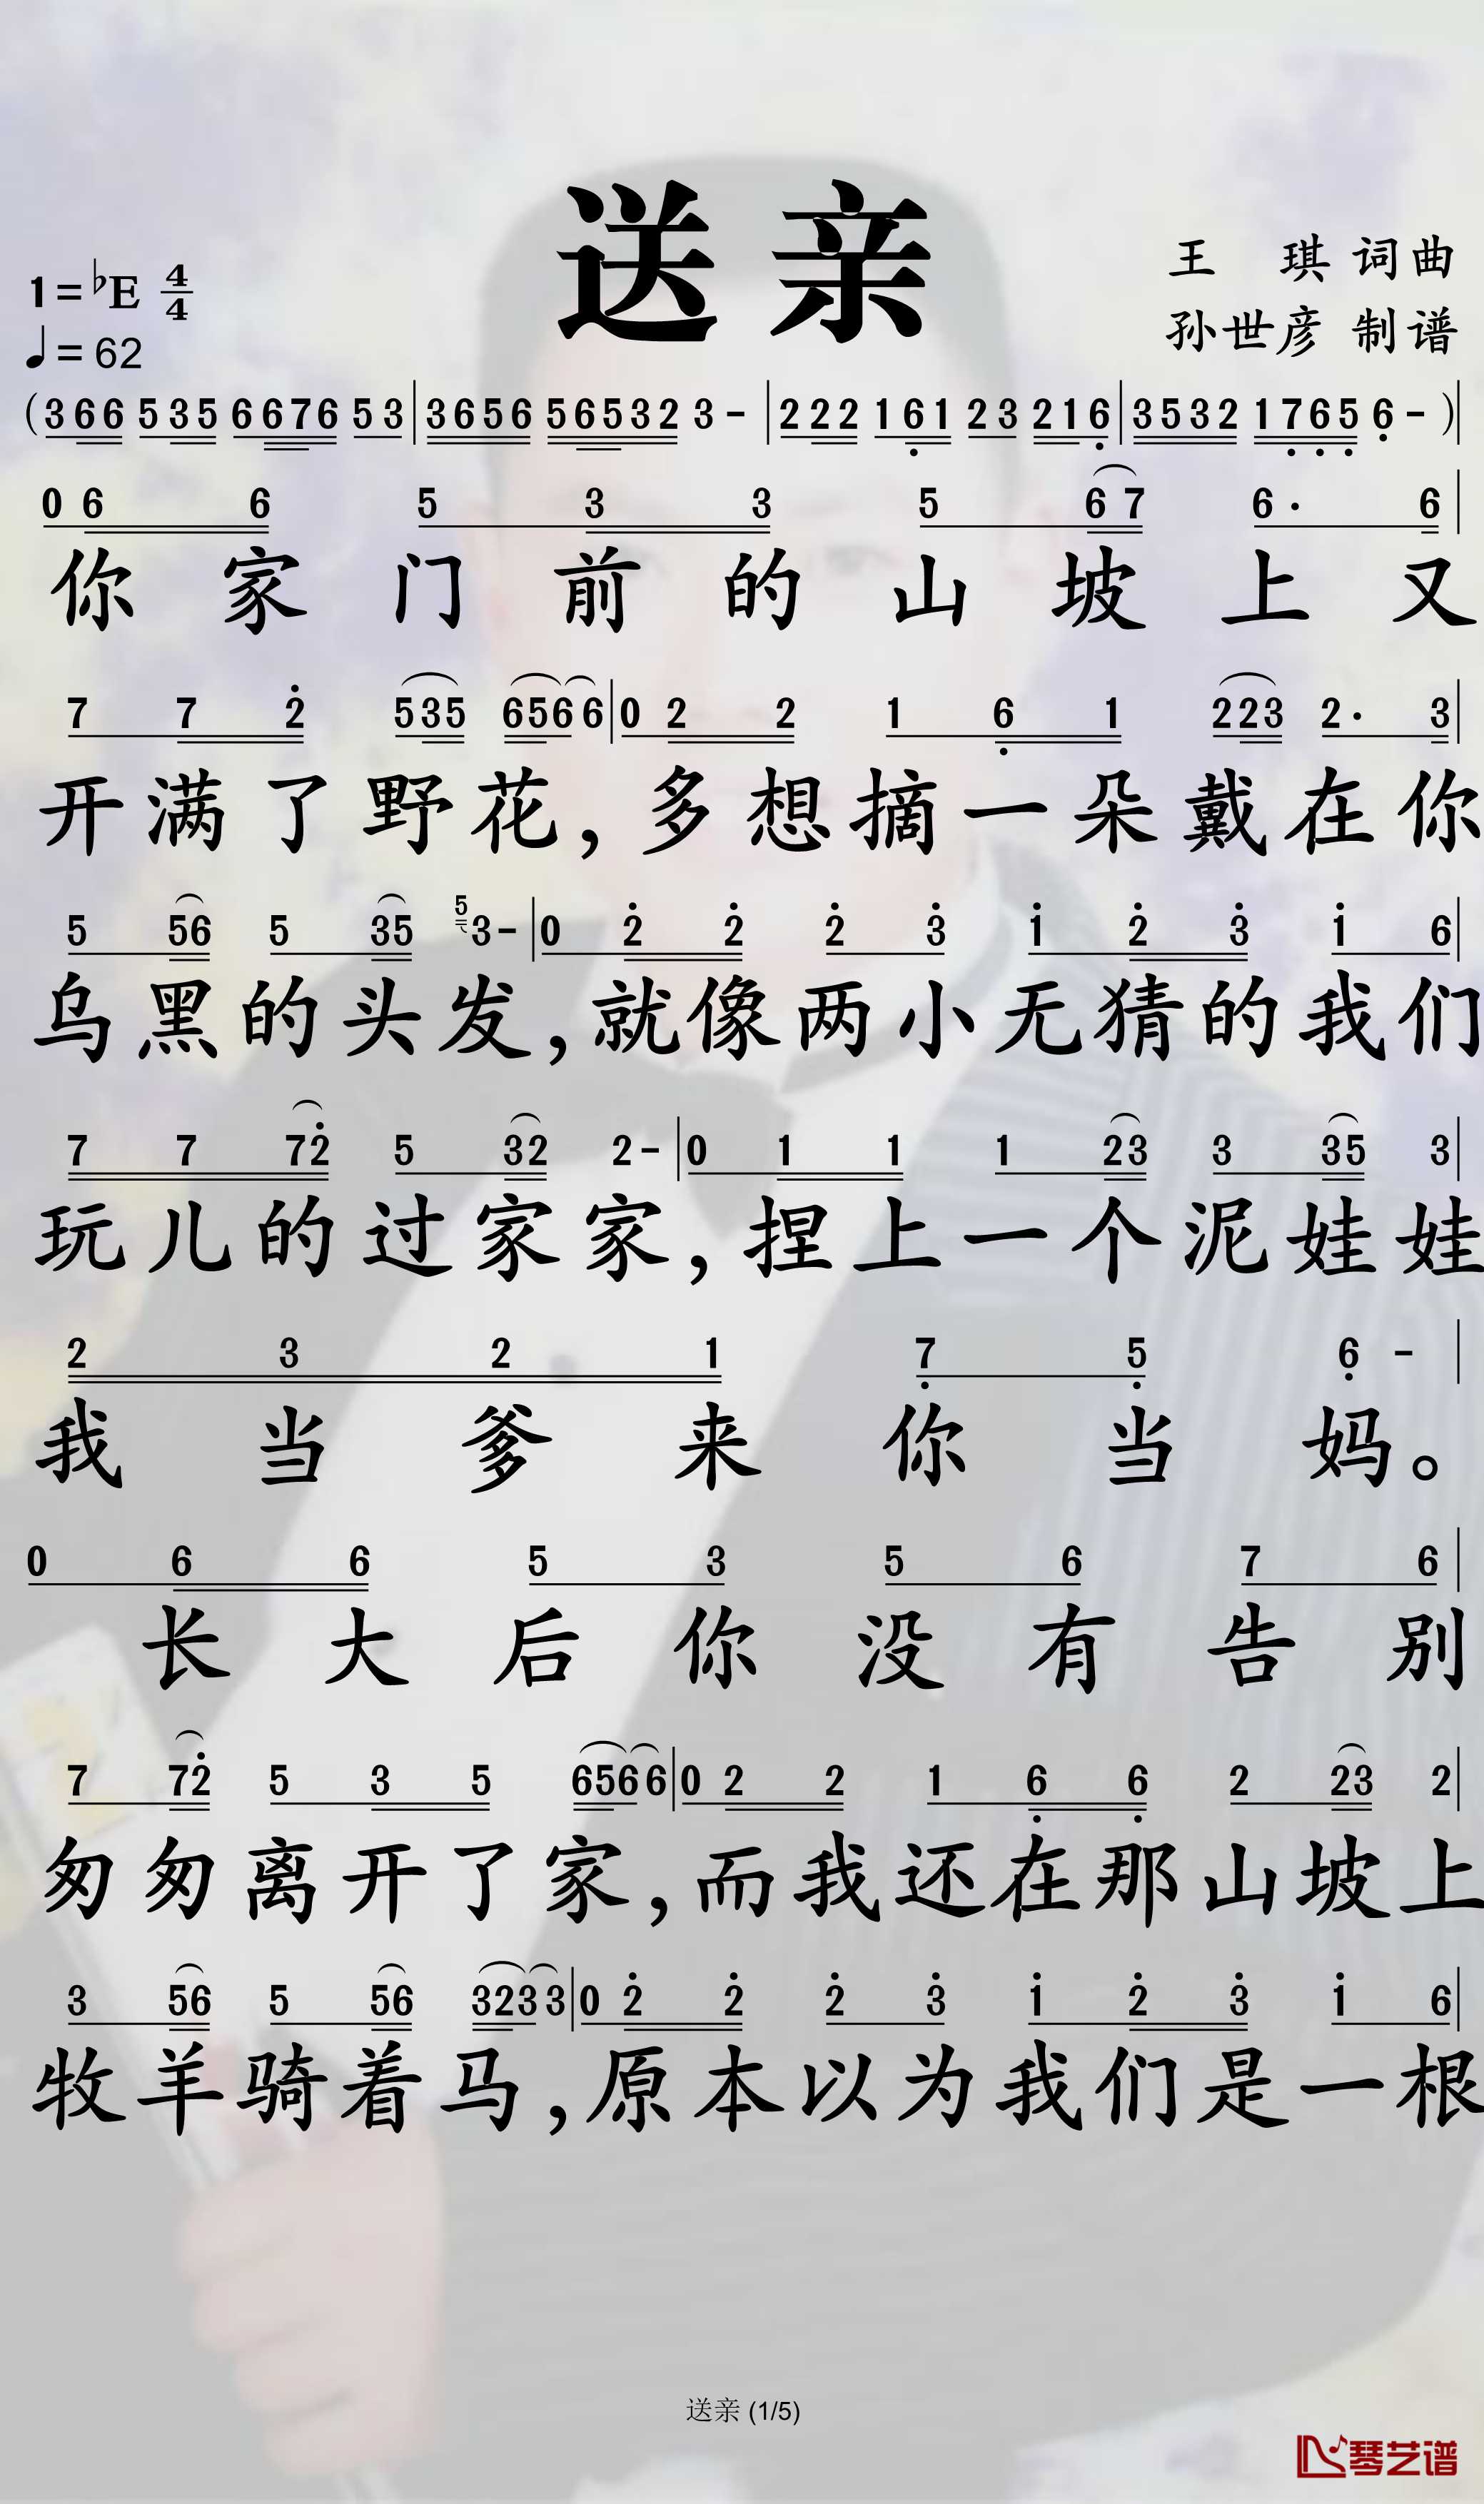 送亲
1=♭E 4/4
♩=62
王 琪 词曲
孙世彦 制谱
(3 6 6 5 3 5 6 6 7 6 5 3 | 3 6 5 6 5 6 5 3 2 3 - | 2 2 2 1 6 1 2 3 2 1 6 | 3 5 3 2 1 7 6 5 6 - ) |
0 6 6 5 3 3 5 6 7 6 · 6 |
你家门前的山坡上又
7 7 2 5 3 5 6 5 6 6 | 0 2 2 1 6 1 2 2 3 2 · 3 |
开满了野花,多想摘一朵戴在你
5 5 6 5 3 5 5 3 - | 0 2 2 2 3 1 2 3 1 6 |
乌黑的头发,就像两小无猜的我们
7 7 7 2 5 3 2 2 - | 0 1 1 1 2 3 3 3 5 3 |
玩儿的过家家,捏上一个泥娃娃
2 3 2 1 7 5 6 - |
我当爹来你当妈。
0 6 6 5 3 5 6 7 6 |
长大后你没有告别
7 7 2 5 3 5 6 5 6 6 | 0 2 2 1 6 6 2 2 3 2 |
匆匆离开了家,而我还在那山坡上
3 5 6 5 5 6 3 2 3 3 | 0 2 2 2 3 1 2 3 1 6 |
牧羊骑着马,原本以为我们是一根
送亲 (1/5)
琴艺谱